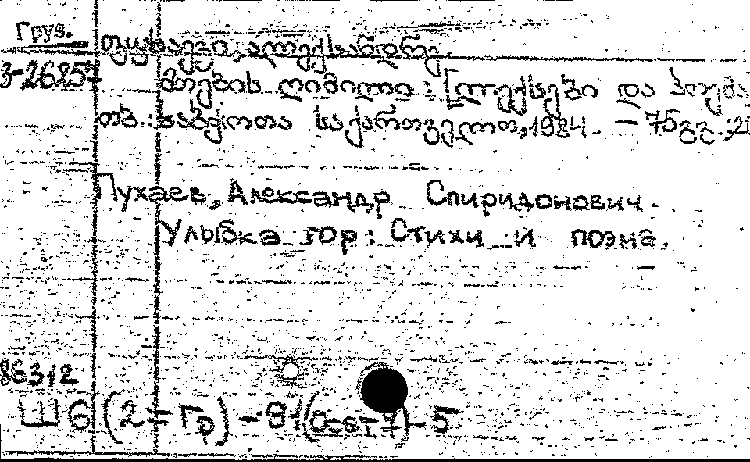 Груз.
ფუხაევი, ალექსანდრე.
3-26257 მთების ღიმილი: [ლექსები და პოემა
თბ.: საბჭოთა საქართველო, 1984. – 75გვ.; 20
Пухаев, Александр Спиридонович.
Улыбка гор: Стихи и поэма.
86312
Ш6(2=Гр)-81(Осет7)-5